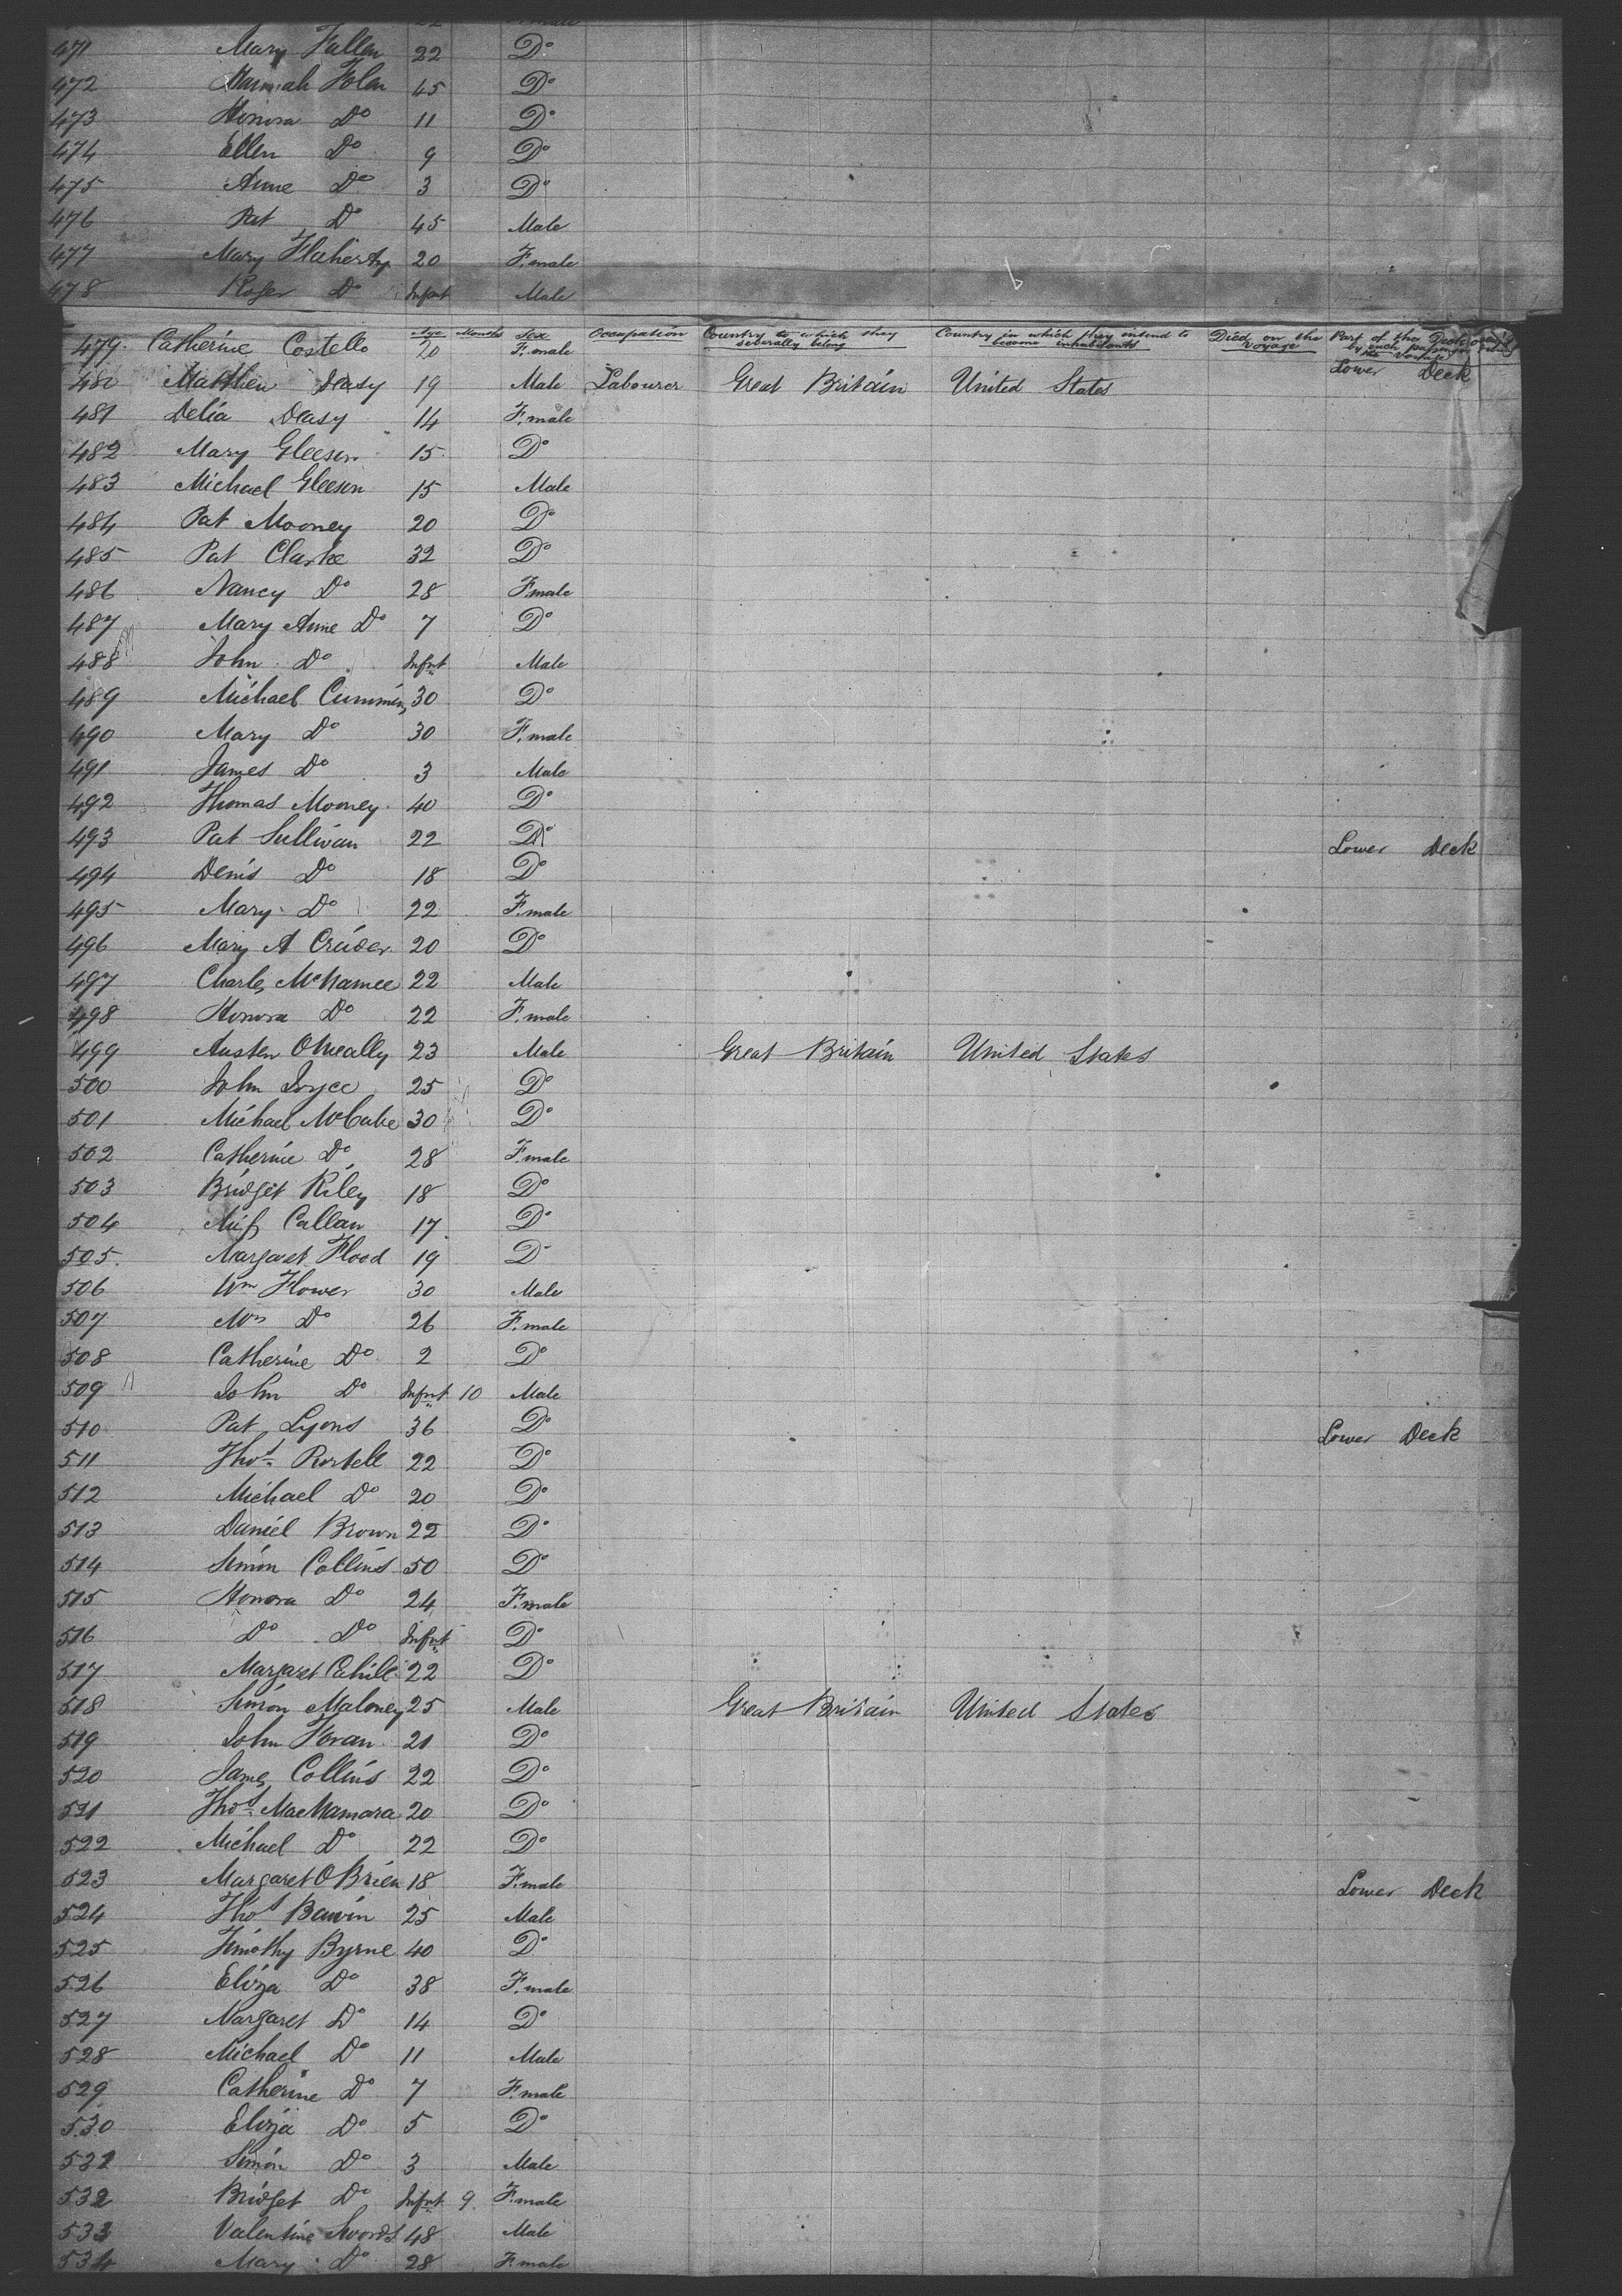 471 Mary Fallen 22 Do
472 Hannah Folan 45 Do
473 Honora Do 11 Do
474 Ellen Do 9 Do
475 Anne Do 3 Do
476 Pat Do 45 Male
477 Mary Flaherty 20 Female
478 Roger Do Infnt Male
Age Months Sex Occupation Country to which they severally belong Country in which they intend to become inhabitants Died on the Voyage Part of the Deck by each passenger
479 Catherine Costello 20 Female Lower Deck
480 Matthew Deasy 19 Male Labourer Great Britain United States
481 Delia Deasy 14 Female
482 Mary Gleeson 15 Do
483 Michael Gleeson 15 Male
484 Pat Mooney 20 Do
485 Pat Clarke 32 Do
486 Nancy Do 28 Female
487 Mary Anne Do 7 Do
488 John Do Infnt Male
489 Michael Cummins 30 Do
490 Mary Do 30 Female
491 James Do 3 Male
492 Thomas Mooney 40 Do
493 Pat Sullivan 22 Do Lower Deck
494 Denis Do 18 Do
495 Mary Do 22 Female
496 Mary A 20 Do
497 Charles McNamee 22 Male
498 Honora Do 22 Female
499 Austen 23 Male Great Britain United States
500 John Joyce 25 Do
501 Michael McCabe 30 Do
502 Catherine Do 28 Female
503 Bridget Riley 18 Do
504 Callan 17 Do
505 Margaret Flood 19 Do
506 Wm Flower 30 Male
507 Mrs Do 26 Female
508 Catherine Do 2 Do
509 John Do Infnt 10 Male
510 Pat Lyons 36 Do Lower Deck
511 Thos 22 Do
512 Michael Do 20 Do
513 Daniel Brown 22 Do
514 Simon Collins 50 Do
515 Honora Do 24 Female
516 Do Do Infnt Do
517 Margaret Cahill 22 Do
518 Simon Maloney 25 Male Great Britain United States
519 John Horan 21 Do
520 James Collins 22 Do
521 Thos MacNamara 20 Do
522 Michael Do 22 Do
523 Margaret O Brien 18 Female Lower Deck
524 Thos 25 Male
525 Timothy Byrne 40 Do
526 Eliza Do 38 Female
527 Margaret Do 14 Do
528 Michael Do 11 Male
529 Catherine Do 7 Female
530 Eliza Do 5 Do
531 Simon Do 3 Male
532 Bridget Do Infnt 9 Female
533 Valentine Swords 48 Male
534 Mary Do 28 Female